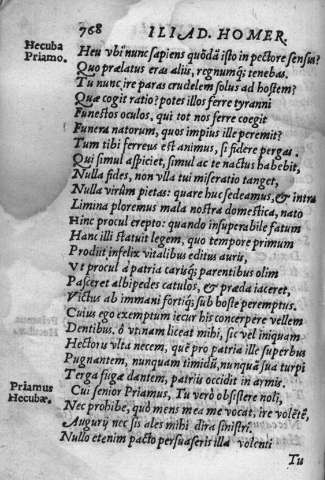 768 ILIAD. HOMER.
Hecuba Priamo.
Heu vbi nunc sapiens quōdā isto in pectore sensus?
Quo prælatus eras aliis, regnumq; tenebas.
Tu nunc ire paras crudelem solus ad hostem?
Quæ cogit ratio? potes illos ferre tyranni
Funestos oculos, qui tot nos ferre coegit
Funera natorum, quos impius ille peremit?
Tum tibi ferreus est animus, si fidere pergas.
Qui simul aspiciet, simul ac te nactus habebit,
Nulla fides, non vlla tui miseratio tanget,
Nulla virûm pietas: quare huc sedeamus, & intra
Limina ploremus mala nostra domestica, nato
Hinc procul erepto: quando insuperabile fatum
Hanc illi statuit legem, quo tempore primum
Prodiit infelix vitalibus editus auris,
Vt procul à patria carisq; parentibus olim
Pasceret albipedes catulos, & præda iaceret,
Victus ab immani fortiq; sub hoste peremptus.
Cuius ego exemptum iecur his concerpere vellem
Dentibus, ô vtinam liceat mihi, sic vel iniquam
Hectoris vlta necem, quē pro patria ille superbus
Pugnantem, nunquam timidū, nunquā sua turpi
Terga fugæ dantem, patriis occidit in armis.
Priamus Hecubæ.
Cui senior Priamus, Tu verò obsistere noli,
Nec prohibe, quò mens mea me vocat, ire volētē,
Augurij nec sis ales mihi dira sinistri.
Nullo etenim pacto persuaseris illa volenti
Tu